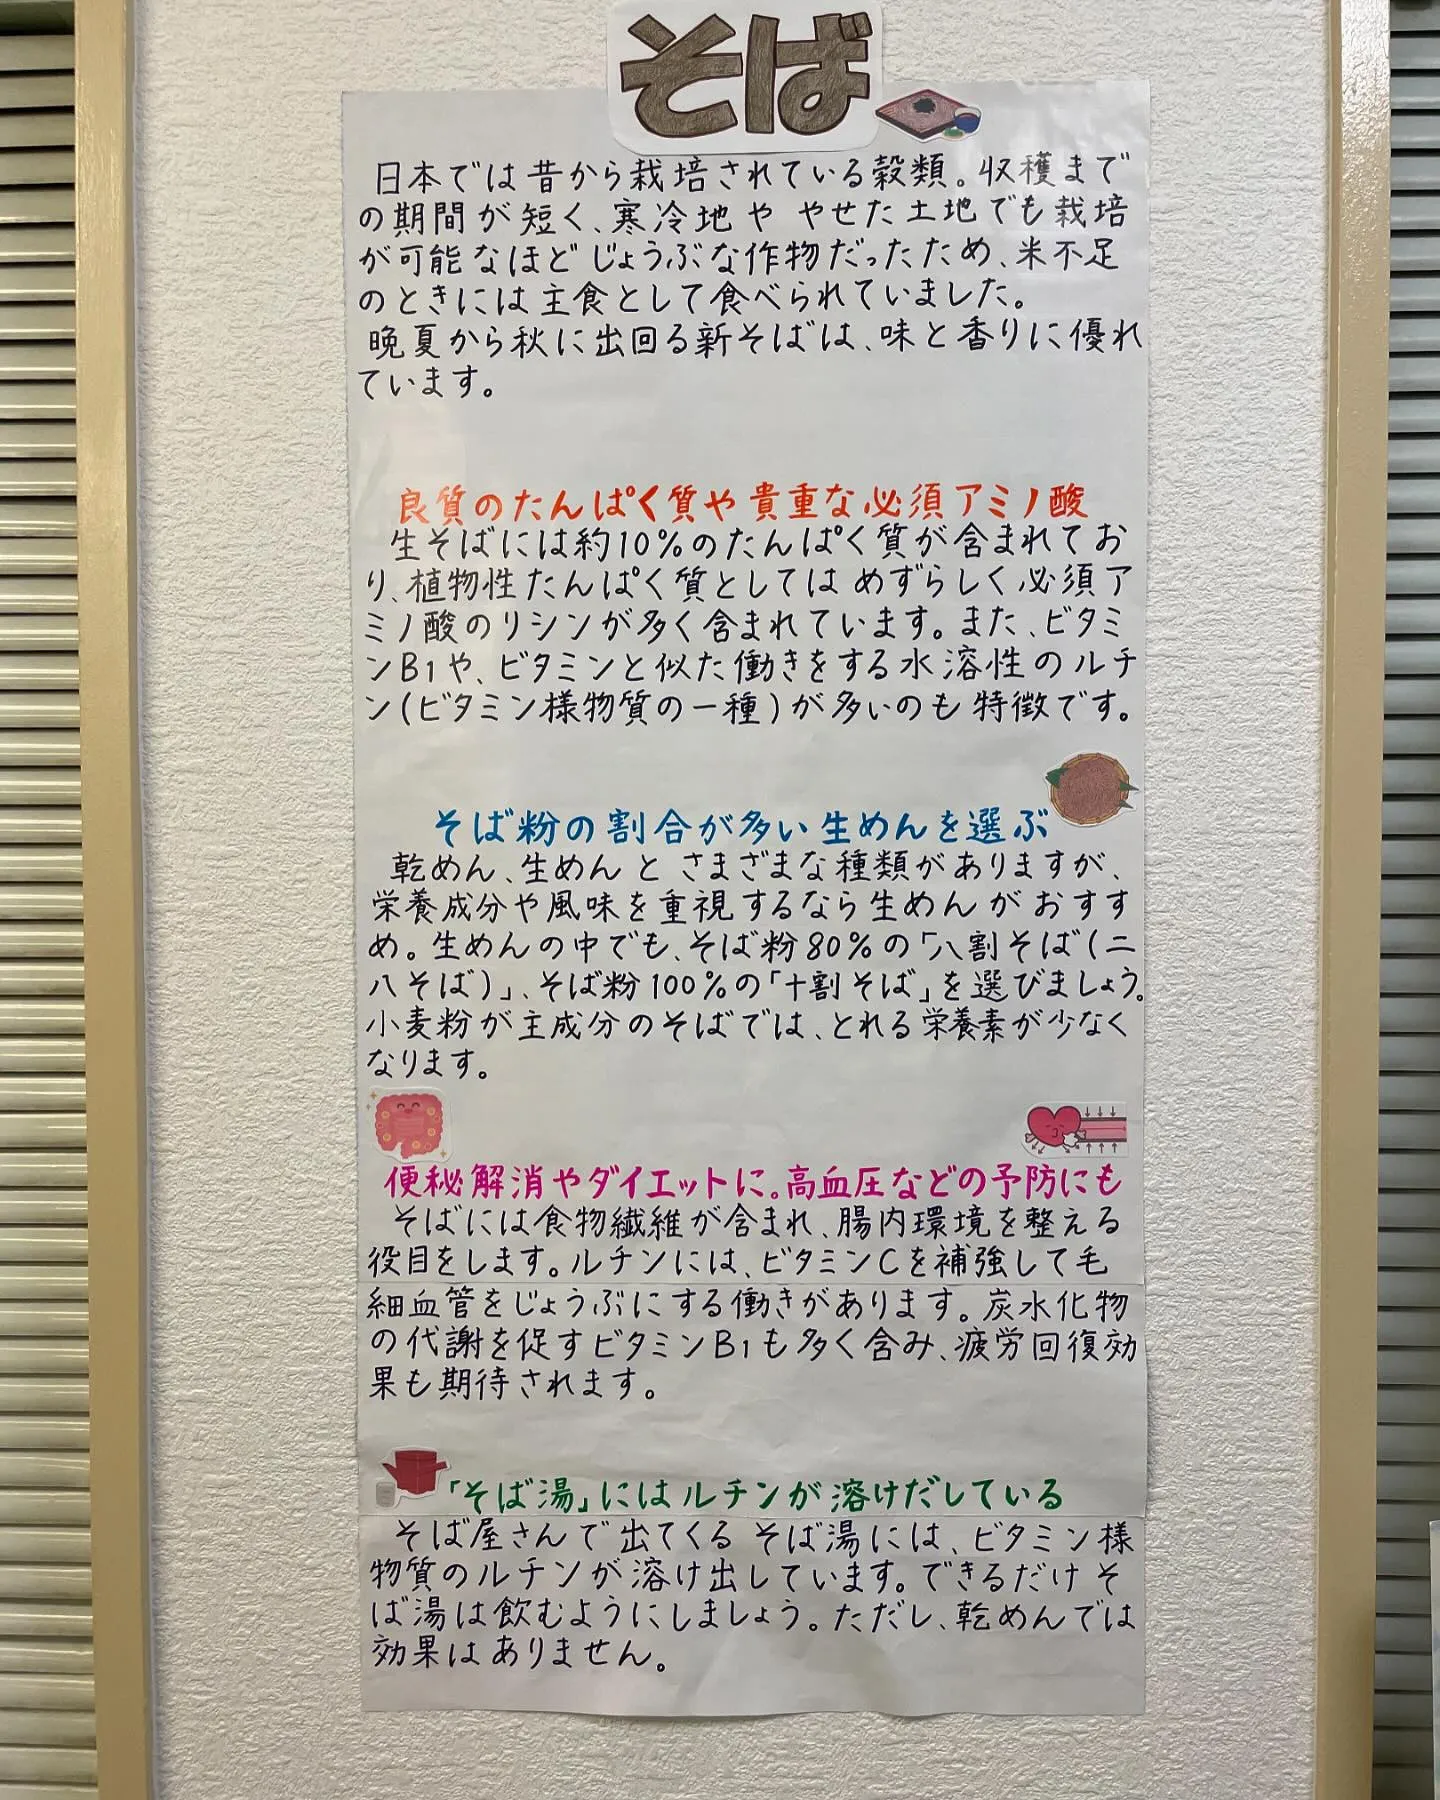 そば
日本では昔から栽培されている穀類。収穫まで
の期間が短く、寒冷地や やせた土地でも栽培
が可能なほど じょうぶな作物だったため、米不足
のときには主食として食べられていました。
晩夏から秋に出回る新そばは、味と香りに優れ
ています。
良質のたんぱく質や貴重な必須アミノ酸
生そばには約10%のたんぱく質が含まれてお
り、植物性たんぱく質としては めずらしく必須ア
ミノ酸のリシンが多く含まれています。また、ビタミ
ンB1や、ビタミンと似た働きをする水溶性のルチ
ン(ビタミン様物質の一種)が多いのも特徴です。
そば粉の割合が多い生めんを選ぶ
乾めん、生めんと さまざまな種類がありますが、
栄養成分や風味を重視するなら生めんがおすす
め。生めんの中でも、そば粉80%の「八割そば(二
八そば)」、そば粉100%の「十割そば」を選びましょう。
小麦粉が主成分のそばでは、とれる栄養素が少なく
なります。
便秘解消やダイエットに。高血圧などの予防にも
そばには食物繊維が含まれ、腸内環境を整える
役目をします。ルチンには、ビタミンCを補強して毛
細血管をじょうぶにする働きがあります。炭水化物
の代謝を促すビタミンB1も多く含み、疲労回復効
果も期待されます。
「そば湯」にはルチンが溶けだしている
そば屋さんで出てくる そば湯には、ビタミン様
物質のルチンが溶け出しています。できるだけ そ
ば湯は飲むようにしましょう。ただし、乾めんでは
効果はありません。